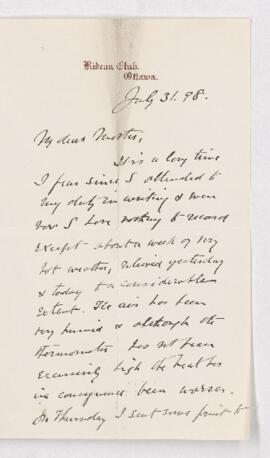 Rideau Club.
Ottawa.
July 31. 98.
My dear
It is a long time
I fear since I attended to
my duty in writing & even
now I have nothing to record
except about a week of very
hot weather, relieved yesterday
& today to a considerable
extent. The air has been
very humid & although the
thermometer has not been
excessively high the heat has
in consequence been worse.
On Thursday I sent some fruit to